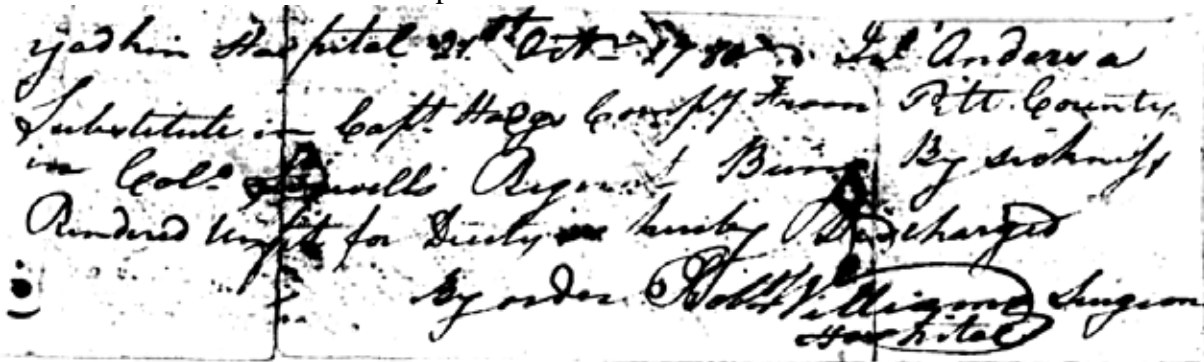 yadkin Hospital 21st Octr 1780 Jas Anders a
Substitute in Capt. Compy From Pitt County
in Colo. Regmt Being By sickness
Rendered Unfit for Duty is hereby Discharged
By order Robt Williams Surgeon
Hospital